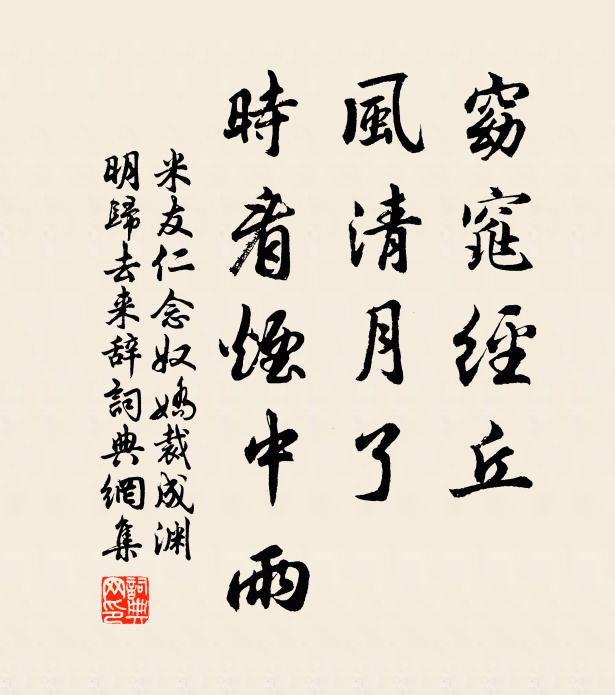 窈窕經丘
風清月了
時看煙中雨
米友仁念奴嬌裁成淵
明歸去来辞詞典網集
詞典網印